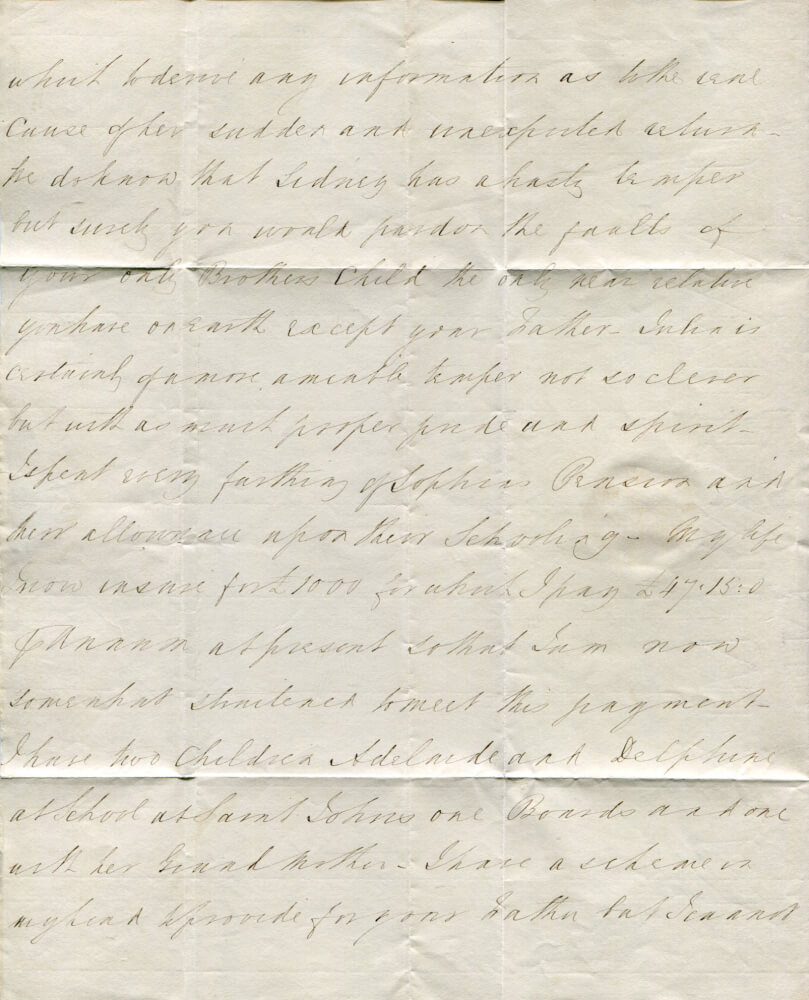 which to derive any information as to the real
cause of her sudden and unexpected return -
We do know that Sidney has a hasty temper
but surely you would pardon the faults of
your only Brothers Child the only near relative
you have on Earth except your Father - Julia is
certainly of a more amiable temper not so clever
but with as much proper pride and spirit -
I spent every farthing of Sophias Pension and
their allowance upon their Schooling - My life
I now insure for £1000 for which I pay £47.15:0
℔ Annum at present so that I am now
somewhat straitened to meet this payment -
I have two Children Adelaide and Delphine
at School at Saint Johns one Boards and one
with her Grand Mother - I have a scheme in
my head to provide for your Father but I cannot